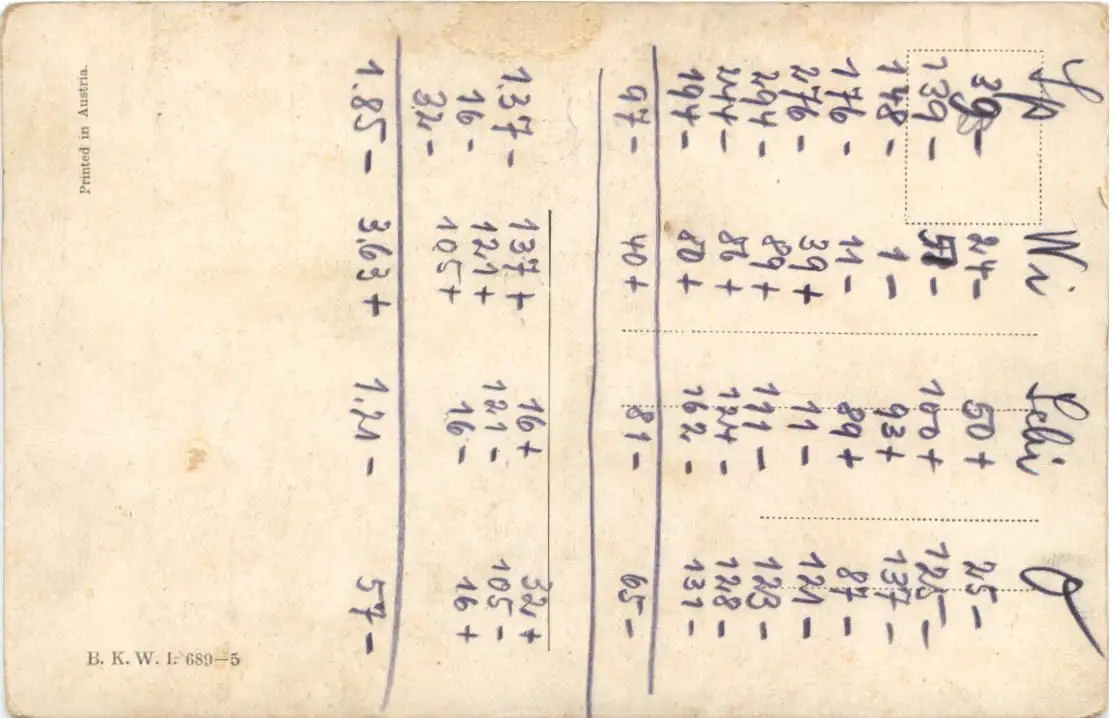 Wi
39- 24- 50+ 25-
139- 51- 100+ 125-
148- 1- 93+ 137-
176- 11- 89+ 87-
276- 39+ 11- 121-
294- 89+ 111- 123-
244- 86+ 124- 128-
194- 80+ 162- 131-
97- 40+ 81- 65-
1,37- 137+ 16+ 32+
16- 121+ 121- 105-
32- 105+ 16- 16+
1.85- 3.63+ 1.21- 57-
Printed in Austria.
B. K. W. I. 689-5